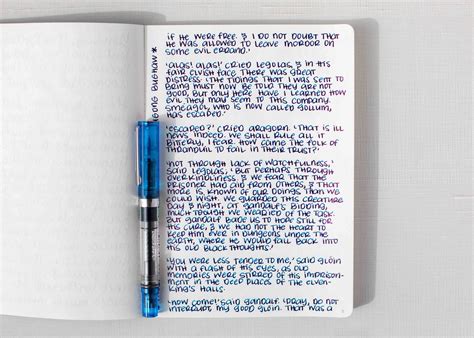 if he were free. & I do not doubt that
he was allowed to leave mordor on
some evil errand.'
'Alas! alas!' cried Legolas, & in his
fair elvish face there was great
distress. 'The tidings that I was sent to
bring must now be told. They are not
good, but only here have I learned how
evil they may seem to this company.
Smeagol, who is now called gollum,
has escaped.'
'Escaped?' cried Aragorn. 'That is ill
news indeed. We shall rule it
bitterly, I fear. How came the folk of
Thranduil to fail in their trust?'
'Not through lack of watchfulness,'
said Legolas, 'but perhaps through
overkindliness. & we fear that the
prisoner had aid from others, & that
more is known of our doings than we
could wish. We guarded this creature
day & night, at gandalf's bidding,
much though we wearied of the task.
But gandalf bade us to hope still for
his cure, & we had not the heart to
keep him ever in dungeons under the
earth, where he would fall back into
his old black thoughts.'
'You were less tender to me,' said gloin
with a flash of his eyes, as old
memories were stirred of his imprison-
ment in the deep places of the elven-
king's halls.
'Now come!' said gandalf. 'Pray, do not
interrupt, my good gloin. That was a